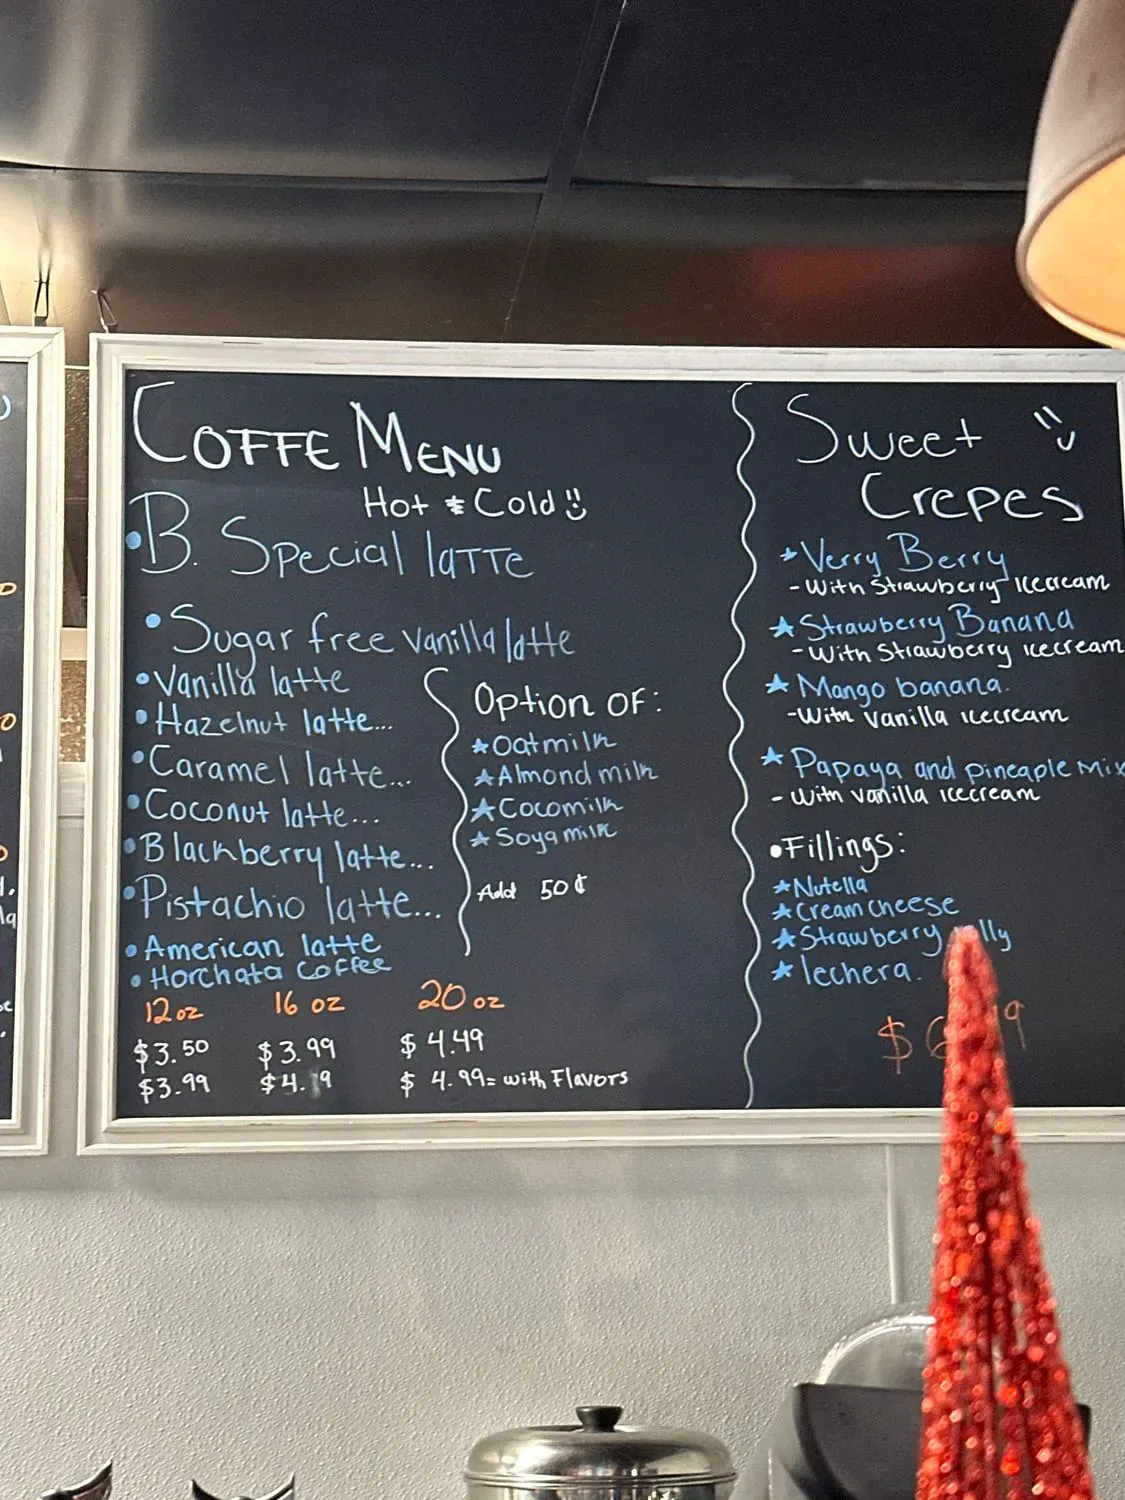 COFFE MENU
Hot & Cold
• B. Special latte
• Sugar free vanilla latte
• Vanilla latte
• Hazelnut latte...
• Caramel latte...
• Coconut latte...
• Blackberry latte...
• Pistachio latte...
• American latte
• Horchata Coffee
Option of:
★ Oatmilk
★ Almond milk
★ Cocomilk
★ Soya milk
Add 50¢
12 oz 16 oz 20 oz
$3.50 $3.99 $4.49
$3.99 $ 4.99= with Flavors
Sweet
Crepes
★ Verry Berry
- With Strawberry Icecream
★ Strawberry Banana
- With Strawberry icecream
★ Mango banana.
- With Vanilla icecream
★ Papaya and pineaple Mix
- With Vanilla icecream
• Fillings:
★ Nutella
★ Cream cheese
★ Strawberry
★ lechera.